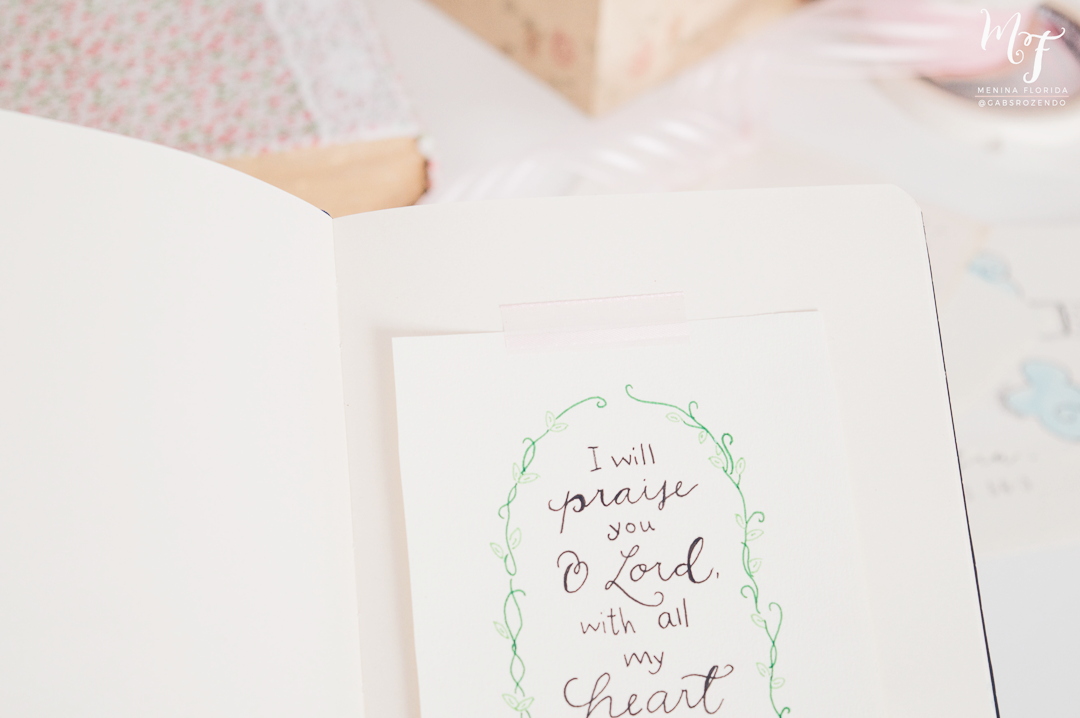 MF
MENINA FLORIDA
@GABSROZENDO
I will
praise
you
O Lord,
with all
my
heart